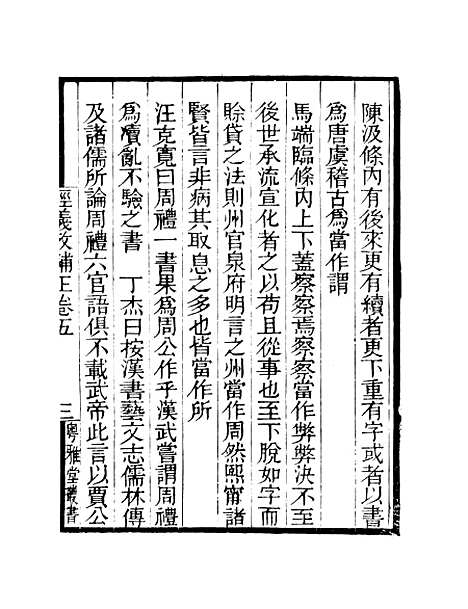 陳汲條內有後來更有續者更下重有字或者以書
爲唐虞稽古爲當作謂
馬端臨條內上下蓋察察焉察察當作弊弊決不至
後世承流宣化者之以苟且從事也至下脫如字而
賒貸之法則州官泉府明言之州當作周然熙甯諸
賢皆言非病其取息之多也皆當作所
汪克寬曰周禮一書果爲周公作乎漢武嘗謂周禮
爲瀆亂不驗之書　丁杰曰按漢書藝文志儒林傳
及諸儒所論周禮六官語俱不載武帝此言以賈公
經義攷補正卷五
三
粵雅堂叢書